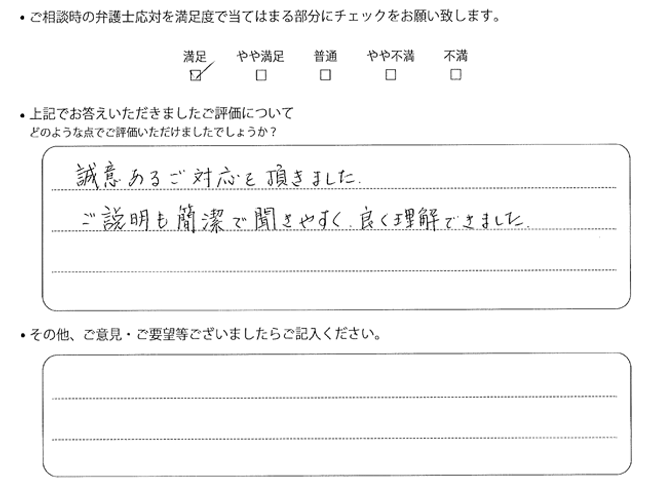 • ご相談時の弁護士応対を満足度で当てはまる部分にチェックをお願い致します。
満足 やや満足 普通 やや不満 不満
☑ ☐ ☐ ☐ ☐
• 上記でお答えいただきましたご評価について
どのような点でご評価いただけましたでしょうか？
誠意あるご対応を頂きました.
ご説明も簡潔で聞きやすく.良く理解できました.
• その他、ご意見・ご要望等ございましたらご記入ください。